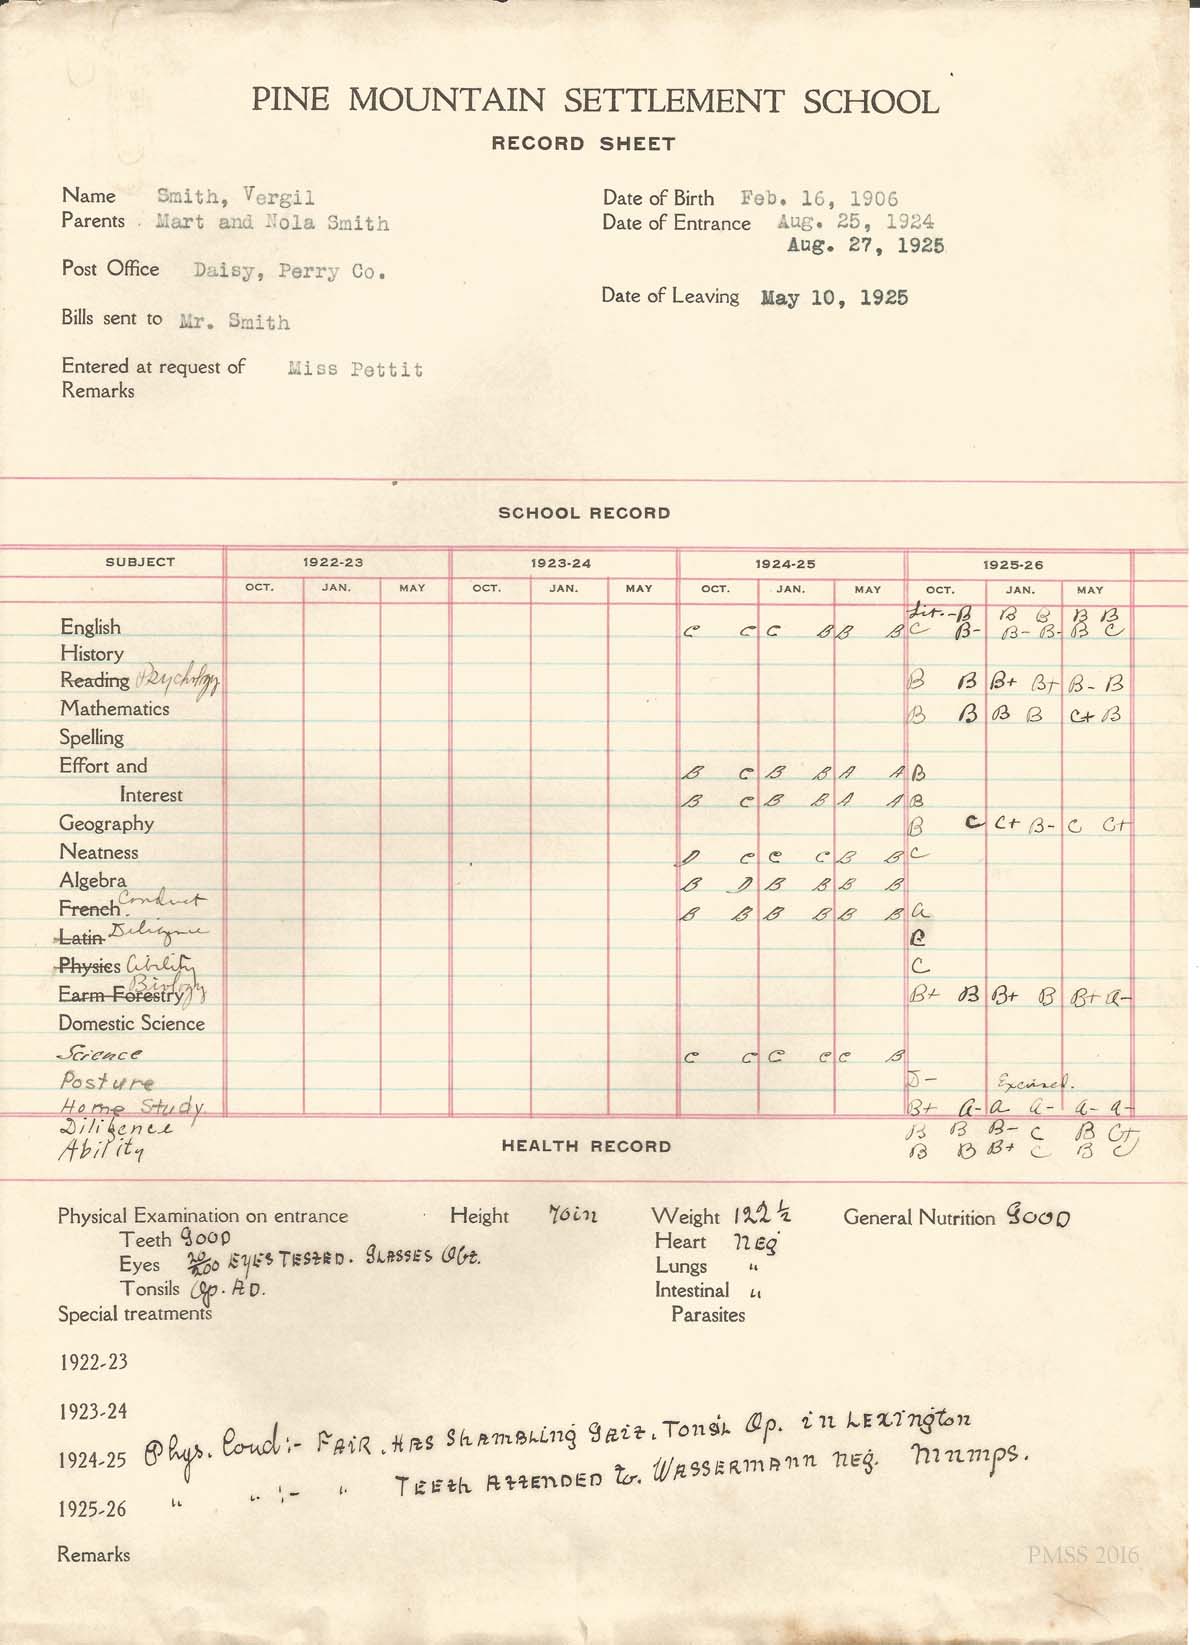 PINE MOUNTAIN SETTLEMENT SCHOOL
RECORD SHEET
Name Smith, Vergil Date of Birth Feb. 16, 1906
Parents Mart and Nola Smith Date of Entrance Aug. 25, 1924
Aug. 27, 1925
Post Office Daisy, Perry Co.
Date of Leaving May 10, 1925
Bills sent to Mr. Smith
Entered at request of Miss Pettit
Remarks
SCHOOL RECORD
SUBJECT 1922-23 1923-24 1924-25 1925-26
OCT. JAN. MAY OCT. JAN. MAY OCT. JAN. MAY OCT. JAN. MAY
Lit.-B B B B B
English C C C B B B C B- B- B- B C
History
Reading Psychology B B B+ B+ B- B
Mathematics B B B B C+ B
Spelling
Effort and B C B B A A B
Interest B C B B A A B
Geography B C C+ B- C C+
Neatness D C C C B B C
Algebra B D B B B B
French Conduct B B B B B B A
Latin Diligence
Physics Ability C
Farm Forestry Biology B+ B B+ B B+ A-
Domestic Science
Science C C C C C B
Posture D- Excused.
Home Study B+ A- A A- A- A-
Diligence B B B- C B C+
Ability B B B+ C B C
HEALTH RECORD
Physical Examination on entrance Height 70in Weight 122½ General Nutrition GOOD
Teeth GOOD Heart NEG
Eyes 20/200 EYES TESTED. GLASSES Obt. Lungs "
Tonsils Op. AD. Intestinal "
Special treatments Parasites
1922-23
1923-24
1924-25 Phys. Cond:- FAIR. HAS SHAMBLING GAIT. TONSIL Op. in LEXINGTON
1925-26 " " :- " TEETH ATTENDED to. WASSERMANN NEG. MUMPS.
Remarks
PMSS 2016